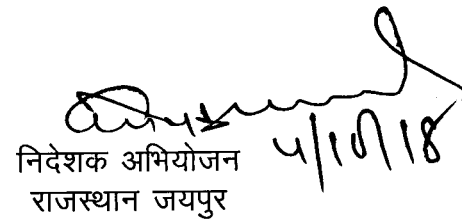 4/10/18
निदेशक अभियोजन
राजस्थान जयपुर